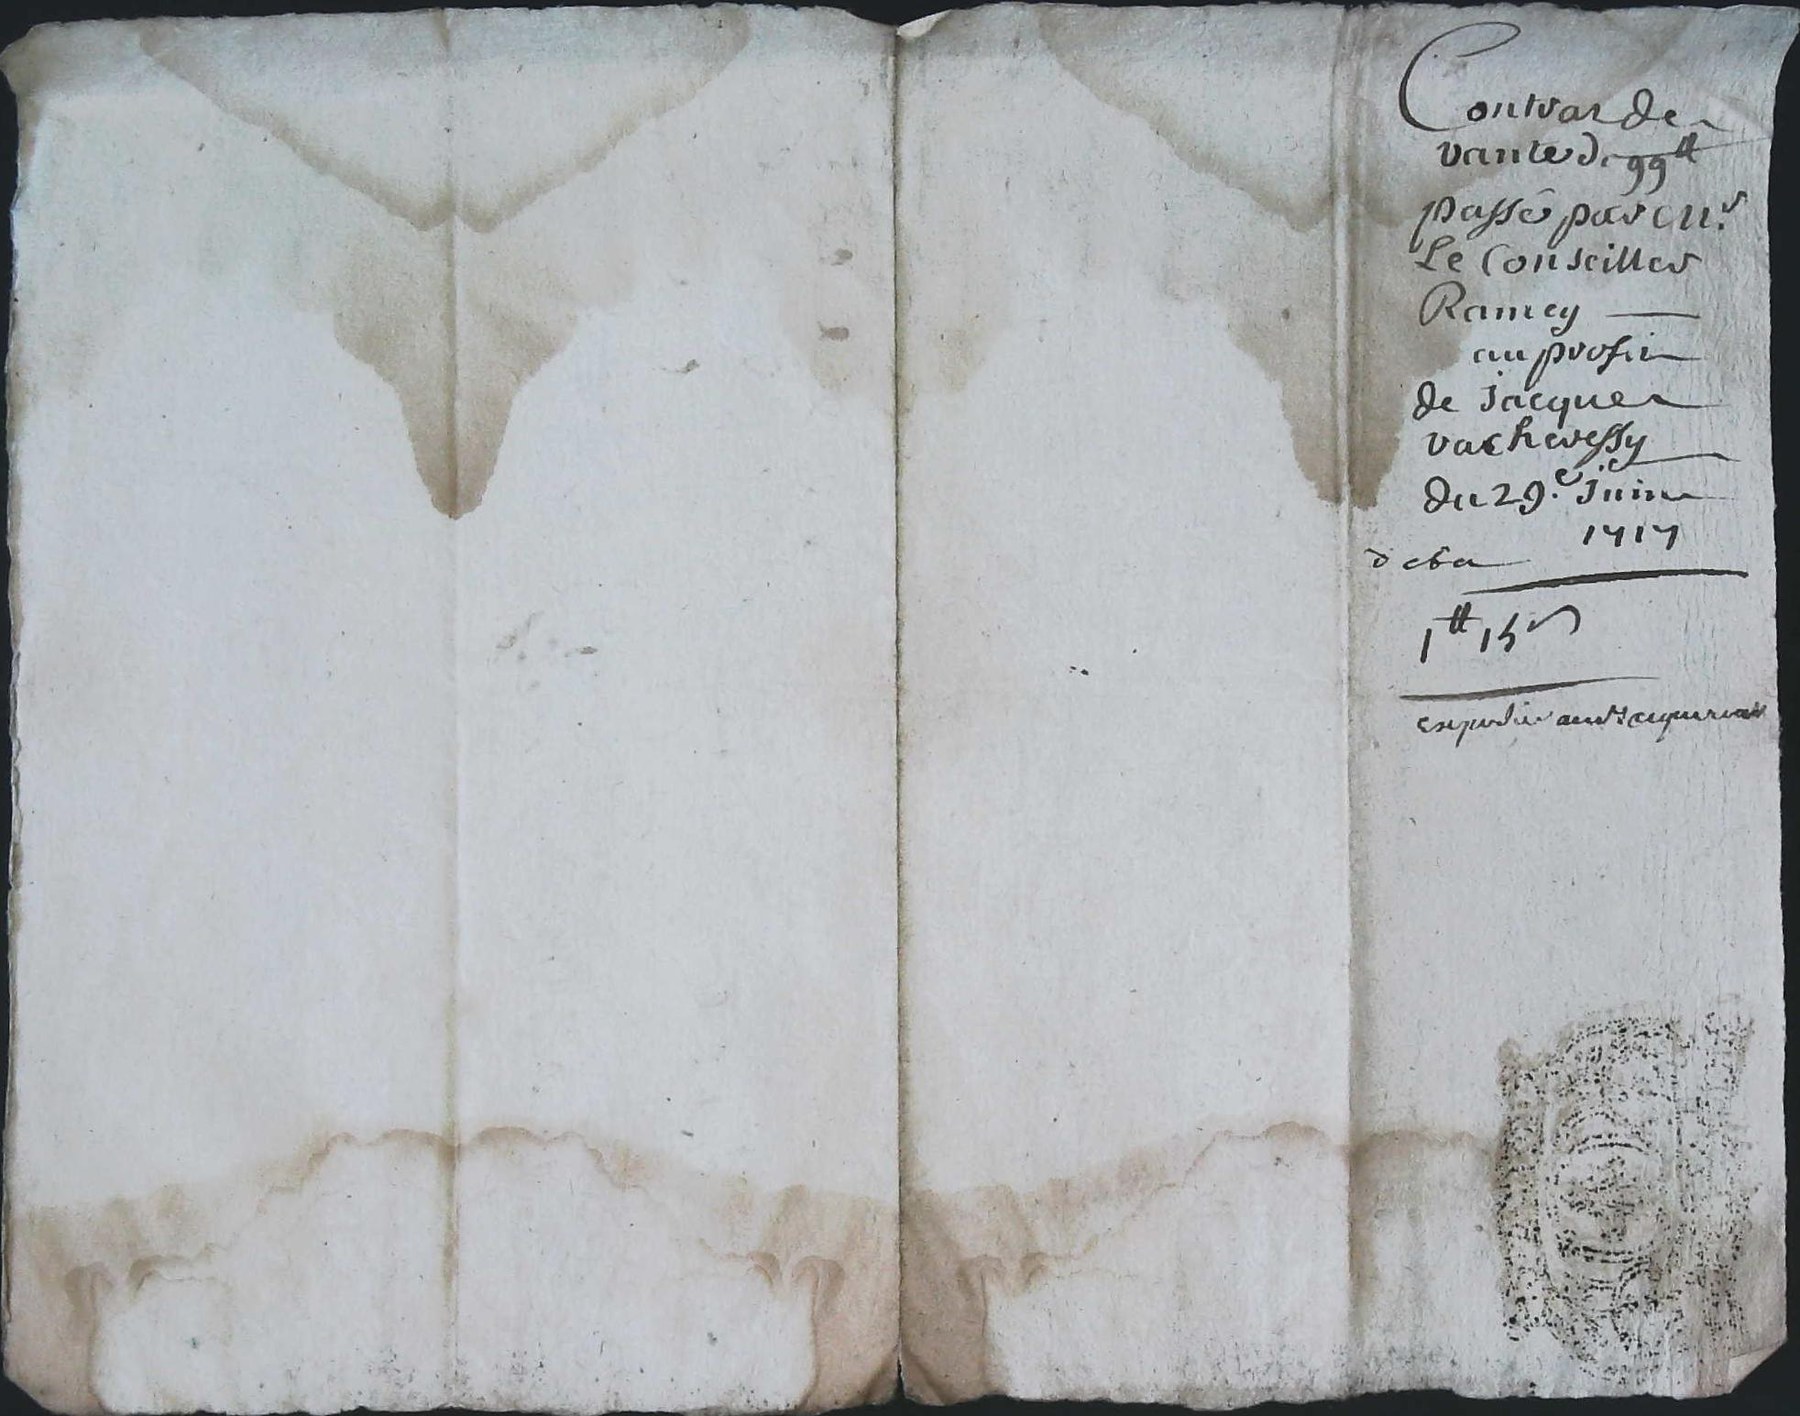 Contrat de
vante de 99tt
passé par Mr.
Le Conseiller
Ramey
au profit
de jacques
vacheressy
du 29.e juin
1717
deba
1tt 15s
expedié audt acquereur